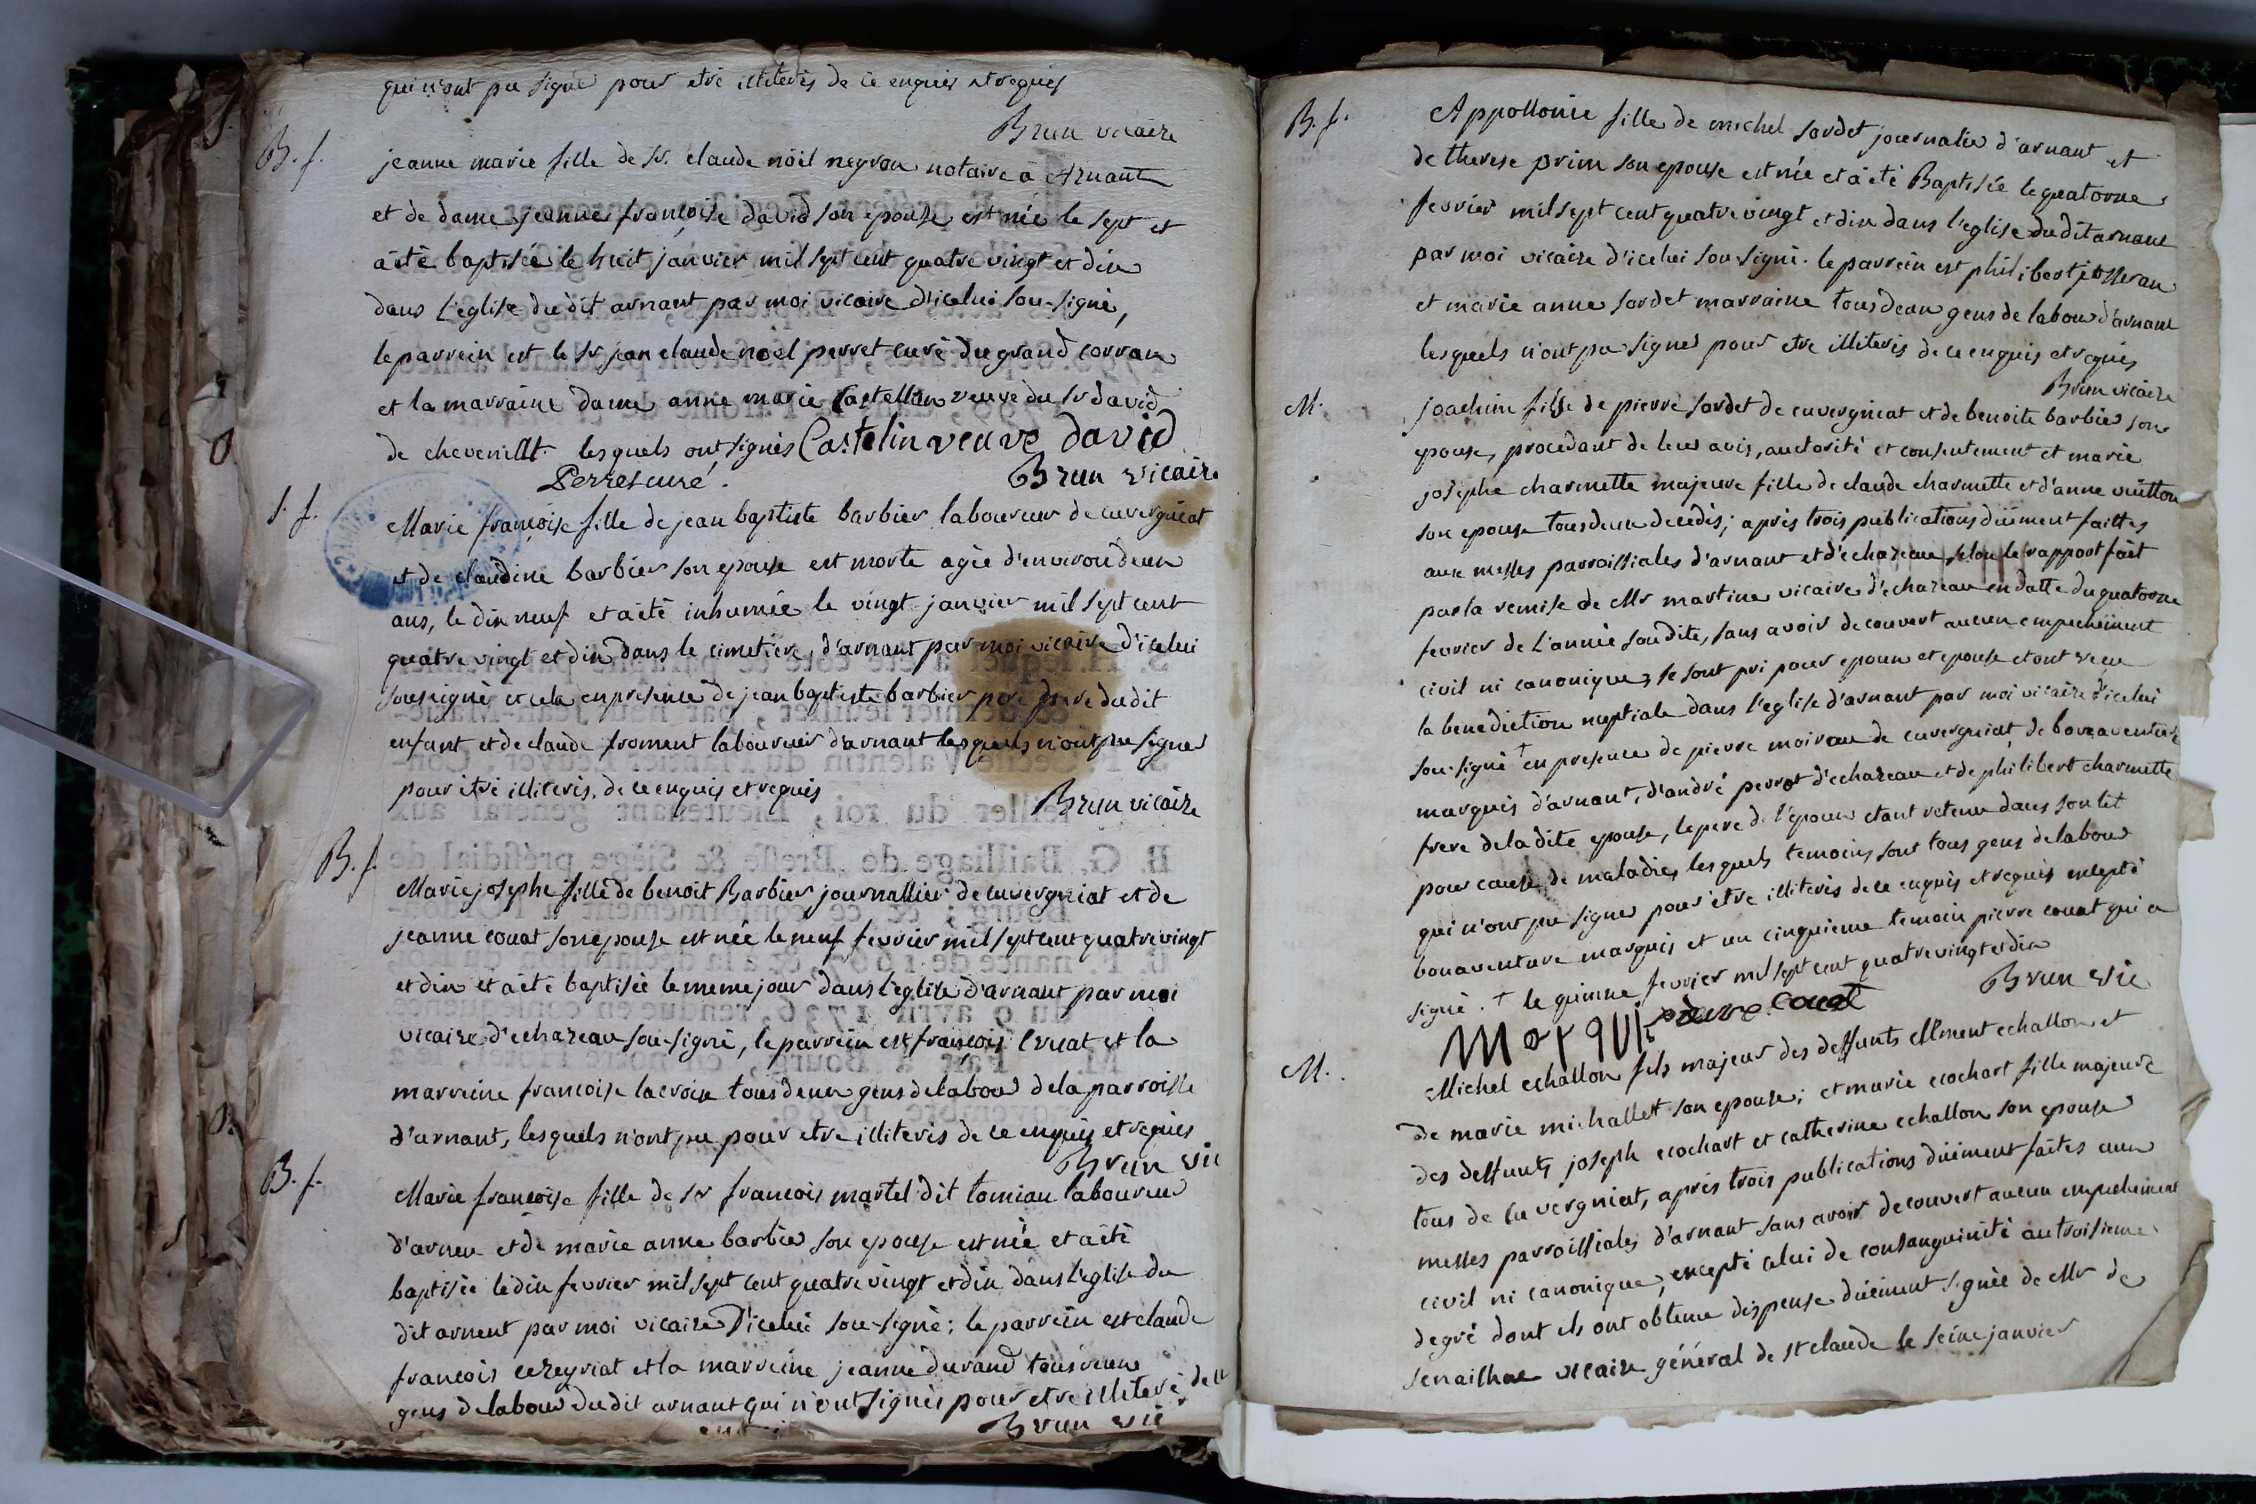 qui n'ont pu signé pour etre illiterés de ce enquis et requis
Brun vicaire
B. f.
jeanne marie fille de sr. claude nöel neyron notaire à Arnant
et de dame jeanne françoise david son epouse est née le sept et
a été baptisée le huit janvier mil sept cent quatre vingt et dix
dans l'eglise du dit arnant par moi vicaire d'icelui sou-signé,
le parrein est le sr jean claude noel perret curé du grand corran
et la marraine dame anne marie Castellin veuve du sr david
de chevenillt. lesquels ont signés Castelin veuve david
Perret curé. Brun vicaire
S. f.
Marie françoise fille de jean baptiste barbier laboureur de cuvergniat
et de claudine barbier son epouse est morte agée d'environ deux
ans, le dix neuf et a été inhumée le vingt janvier mil sept cent
quatre vingt et dix dans le cimetiere d'arnant par moi vicaire d'icelui
soussigné et cela en presence de jean baptiste barbier pere du dit
enfant et de claude froment laboureur d'arnant lesquels n'ont pu signer
pour être illiterés de ce enquis et requis
Brun vicaire
B. f.
Marie josephe fille de benoit Barbier journallier de cuvergniat et de
jeanne couat son epouse est née le neuf fevrier mil sept cent quatre vingt
et dix et a été baptisée le meme jour dans l'eglise d'arnant par moi
vicaire d'echazeau sou-signé, le parrein est françois cruat et la
marreine francoise lacroix tous deux gens de labour de la parroisse
d'arnant, lesquels n'ont pu pour etre illiterés de ce enquis et requis
Brun vic
B. f.
Marie françoise fille de sr francois martel dit tomian laboureur
d'arnen et de marie anne barbier son epouse est née et a été
baptisée le dix fevrier mil sept cent quatre vingt et dix dans l'eglise du
dit arnent par moi vicaire d'icelui sou-signé; le parrein est claude
francois cezeyriat et la marreine jeanne durand tous deux
gens de labour du dit arnant qui n'ont signés pour etre illiteré de ce
Brun vic
B. f.
Appollonie fille de michel sordet journalier d'arnant et
de therese prim son epouse est née et a été Baptisée le quatorze
fevrier mil sept cent quatre vingt et dix dans l'eglise du dit arnant
par moi vicaire d'icelui sou-signé. le parrein est philibert josseran
et marie anne sordet marraine tous deux gens de labour d'arnant
lesquels n'ont pu signer pour etre illiterés de ce enquis et requis
Brun vicaire
M.
joachim fils de pierre sordet de cuvergnieat et de benoite barbier son
epouse, procedant de leur avis, auctorité et consentement et marie
josephe charmette majeure fille de claude charmette et d'anne vuitton
son epouse tous deux decedés; aprés trois publications düement faittes
aux messes parroissiales d'arnant et d'echazeau selon le rapport fait
par la remise de Mr martine vicaire d'echazeau en datte du quatorze
fevrier de l'année soudite, sans avoir decouvert aucun empechement
civil ni canonique, se sont pri pour epoux et epouse et ont recu
la benediction nuptiale dans l'eglise d'arnant par moi vicaire d'icelui
sou-signé † en presence de pierre moirau de cuvergniat, de bonaventure
marquis d'arnant, d'andré perrot d'echazeau et de philibert charmette
frere de la dite epouse, le pere de l'epoux etant retenu dans son lit
pour cause de maladie, lesquels temoins sont tous gens de labour
qui n'ont pu signer pour être illiterés de ce enquis et requis excepté
bonaventure marquis et un cinquieme temoin pierre couat qui a
signé. † le quinze fevrier mil sept cent quatre vingt et dix
Brun vic
Marquis pierre couat
M.
Michel echallon fils majeur des deffunts Clement echallon et
de marie michallet son epouse; et marie ecochart fille majeure
des deffunts joseph ecochart et catherine echallon son epouse
tous de cuvergniat, aprés trois publications düement faites aux
messes parroissiales d'arnant sans avoir decouvert aucun empechement
civil ni canonique, excepté celui de consanguinité au troisieme
degré dont ils ont obtenu dispense düement signée de Mr de
senailhac vicaire général de st claude le seize janvier